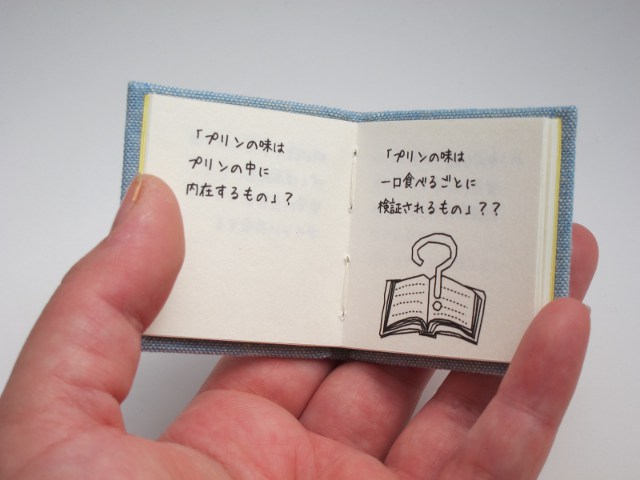 「プリンの味は
プリンの中に
内在するもの」？
「プリンの味は
一口食べるごとに
検証されるもの」？？